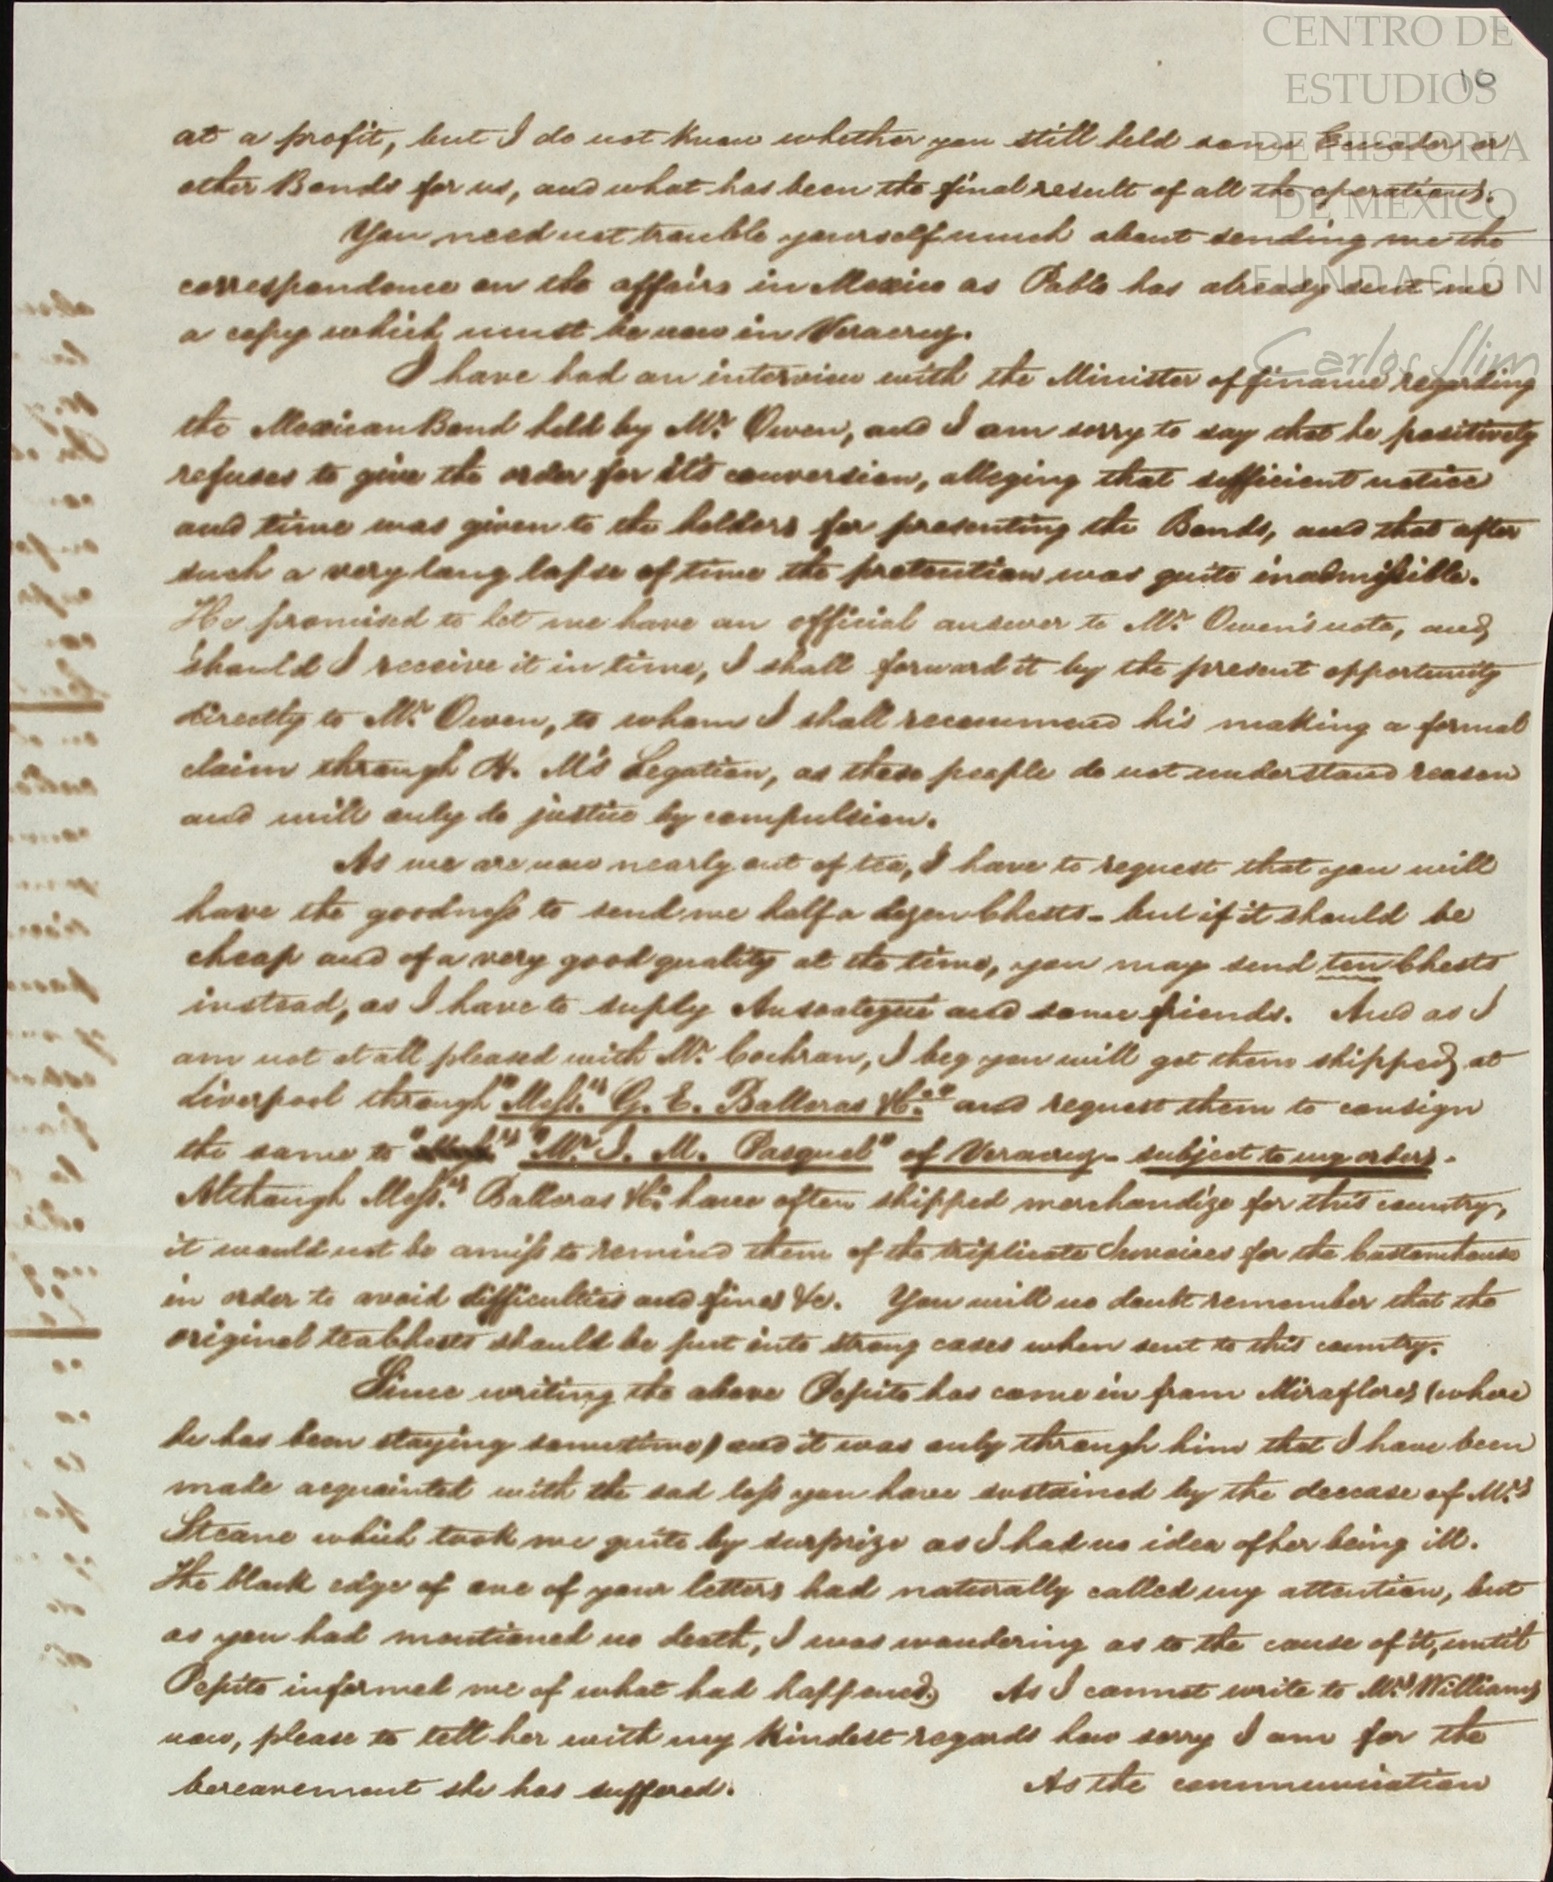 CENTRO DE
ESTUDIOS
DE HISTORIA
DE MÉXICO
FUNDACIÓN
Carlos Slim
10
at a profit, but I do not know whether you still held some Ecuador or
other Bonds for us, and what has been the final result of all the operations.
You need not trouble yourself much about sending me the
correspondence on the affairs in Mexico as Pablo has already sent me
a copy which must be now in Veracruz.
I have had an interview with the Minister of finance regarding
the Mexican Bond held by Mr. Owen, and I am sorry to say that he positively
refuses to give the order for its conversion, alleging that sufficient notice
and time was given to the holders for presenting the Bonds, and that after
such a very long lapse of time the pretention was quite inadmissible.
He promised to let me have an official answer to Mr. Owen's note, and
should I receive it in time, I shall forward it by the present opportunity
directly to Mr. Owen, to whom I shall recommend his making a formal
claim through H. M's Legation, as these people do not understand reason
and will only do justice by compulsion.
As we are now nearly out of tea, I have to request that you will
have the goodness to send me half a dozen Chests - but if it should be
cheap and of a very good quality at the time, you may send ten Chests
instead, as I have to suply Ansoategui and some friends. And as I
am not at all pleased with Mr. Cochran, I beg you will get them shipped at
Liverpool through "Messrs. G. E. Balleras & Co." and request them to consign
the same to "Mr. J. M. Pasquel" of Veracruz - subject to my orders -
Although Messrs. Balleras & Co. have often shipped merchandize for this country,
it would not be amiss to remind them of the triplicate Invoices for the Customhouse
in order to avoid difficulties and fines &c. You will no doubt remember that the
original tea Chests should be put into strong cases when sent to this country.
Since writing the above Pepito has come in from Miraflores (where
he has been staying sometime) and it was only through him that I have been
made acquainted with the sad loss you have sustained by the decease of Mrs.
Steane which took me quite by surprize as I had no idea of her being ill.
The black edge of one of your letters had naturally called my attention, but
as you had mentioned no death, I was wondering as to the cause of it, until
Pepito informed me of what had happened. As I cannot write to Mrs. Williams
now, please to tell her with my kindest regards how sorry I am for the
bereavement she has suffered. As the communication